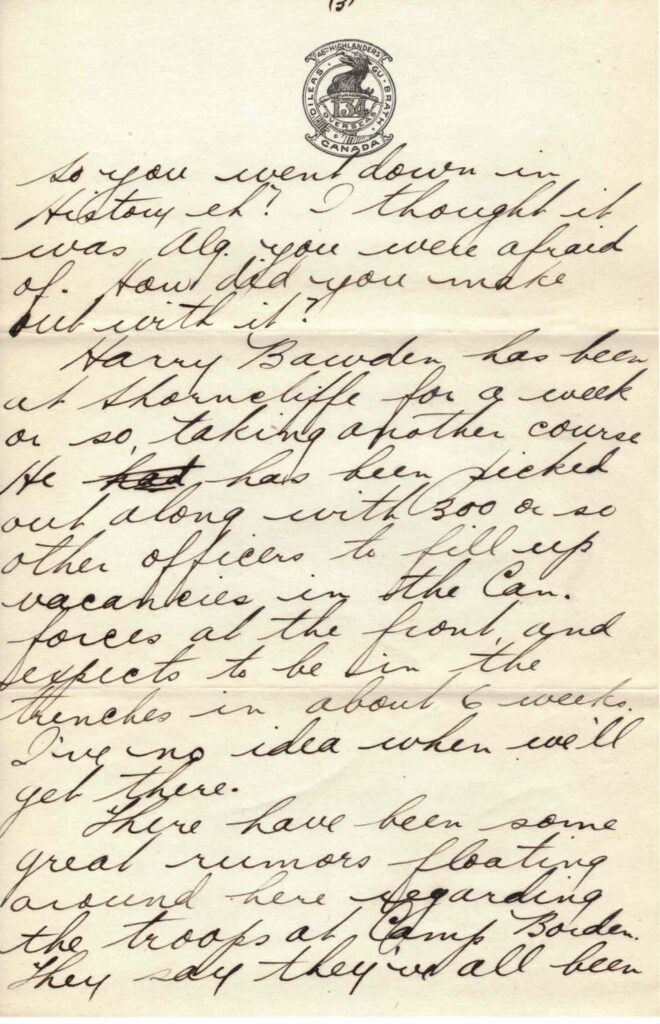 (3)
48TH HIGHLANDERS
DILEAS GU BRATH
134
OVERSEAS
CANADA
so you went down in
History eh? I thought it
was Alg. you were afraid
of. How did you make
out with it?
Harry Bawden has been
at Shorncliffe for a week
or so, taking another course
He had has been picked
out along with 300 or so
other officers to fill up
vacancies in the Can.
forces at the front, and
expects to be in the
trenches in about 6 weeks.
I've no idea when we'll
get there.
There have been some
great rumors floating
around here regarding
the troops at Camp Borden.
They say they've all been